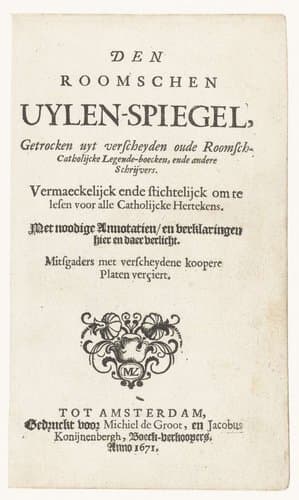 DEN
ROOMSCHEN
UYLEN-SPIEGEL,
Getrocken uyt verscheyden oude Roomsch-
Catholijcke Legende-boecken, ende andere
Schrijvers.
Vermaeckelijck ende stichtelijck om te
lesen voor alle Catholijcke Hertekens.
Met noodige Annotatien/ en verklaringen
hier en daer verlicht.
Mitsgaders met verscheydene koopere
Platen verçiert.
TOT AMSTERDAM,
Gedruckt voor Michiel de Groot, en Jacobus
Konijnenbergh, Boeck-verkoopers,
Anno 1671.